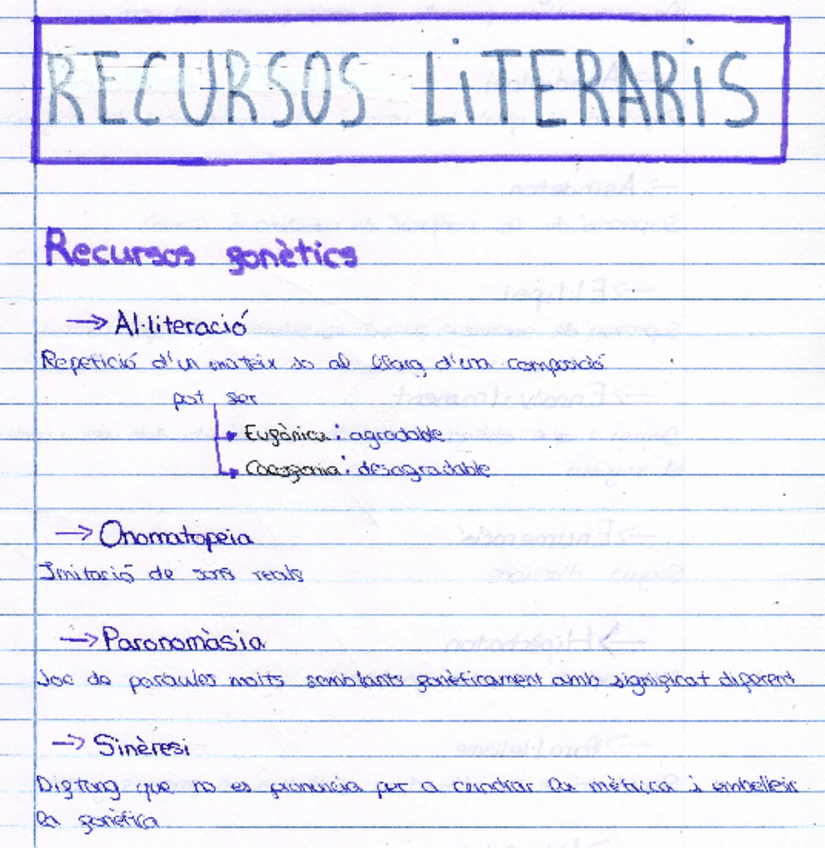 RECURSOS LITERARIS
Recursos fonètics
→ Al·literació
Repetició d'un mateix so al llarg d'una composició
pot ser
Eufònica: agradable
Cacofonia: desagradable
→ Onomatopeia
Imitació de sons reals
→ Paronomàsia
Joc de paraules molts semblants fonèticament amb significat diferent
→ Sinèresi
Diftong que no es pronuncia per a quadrar la mètrica i embellir
la fonètica